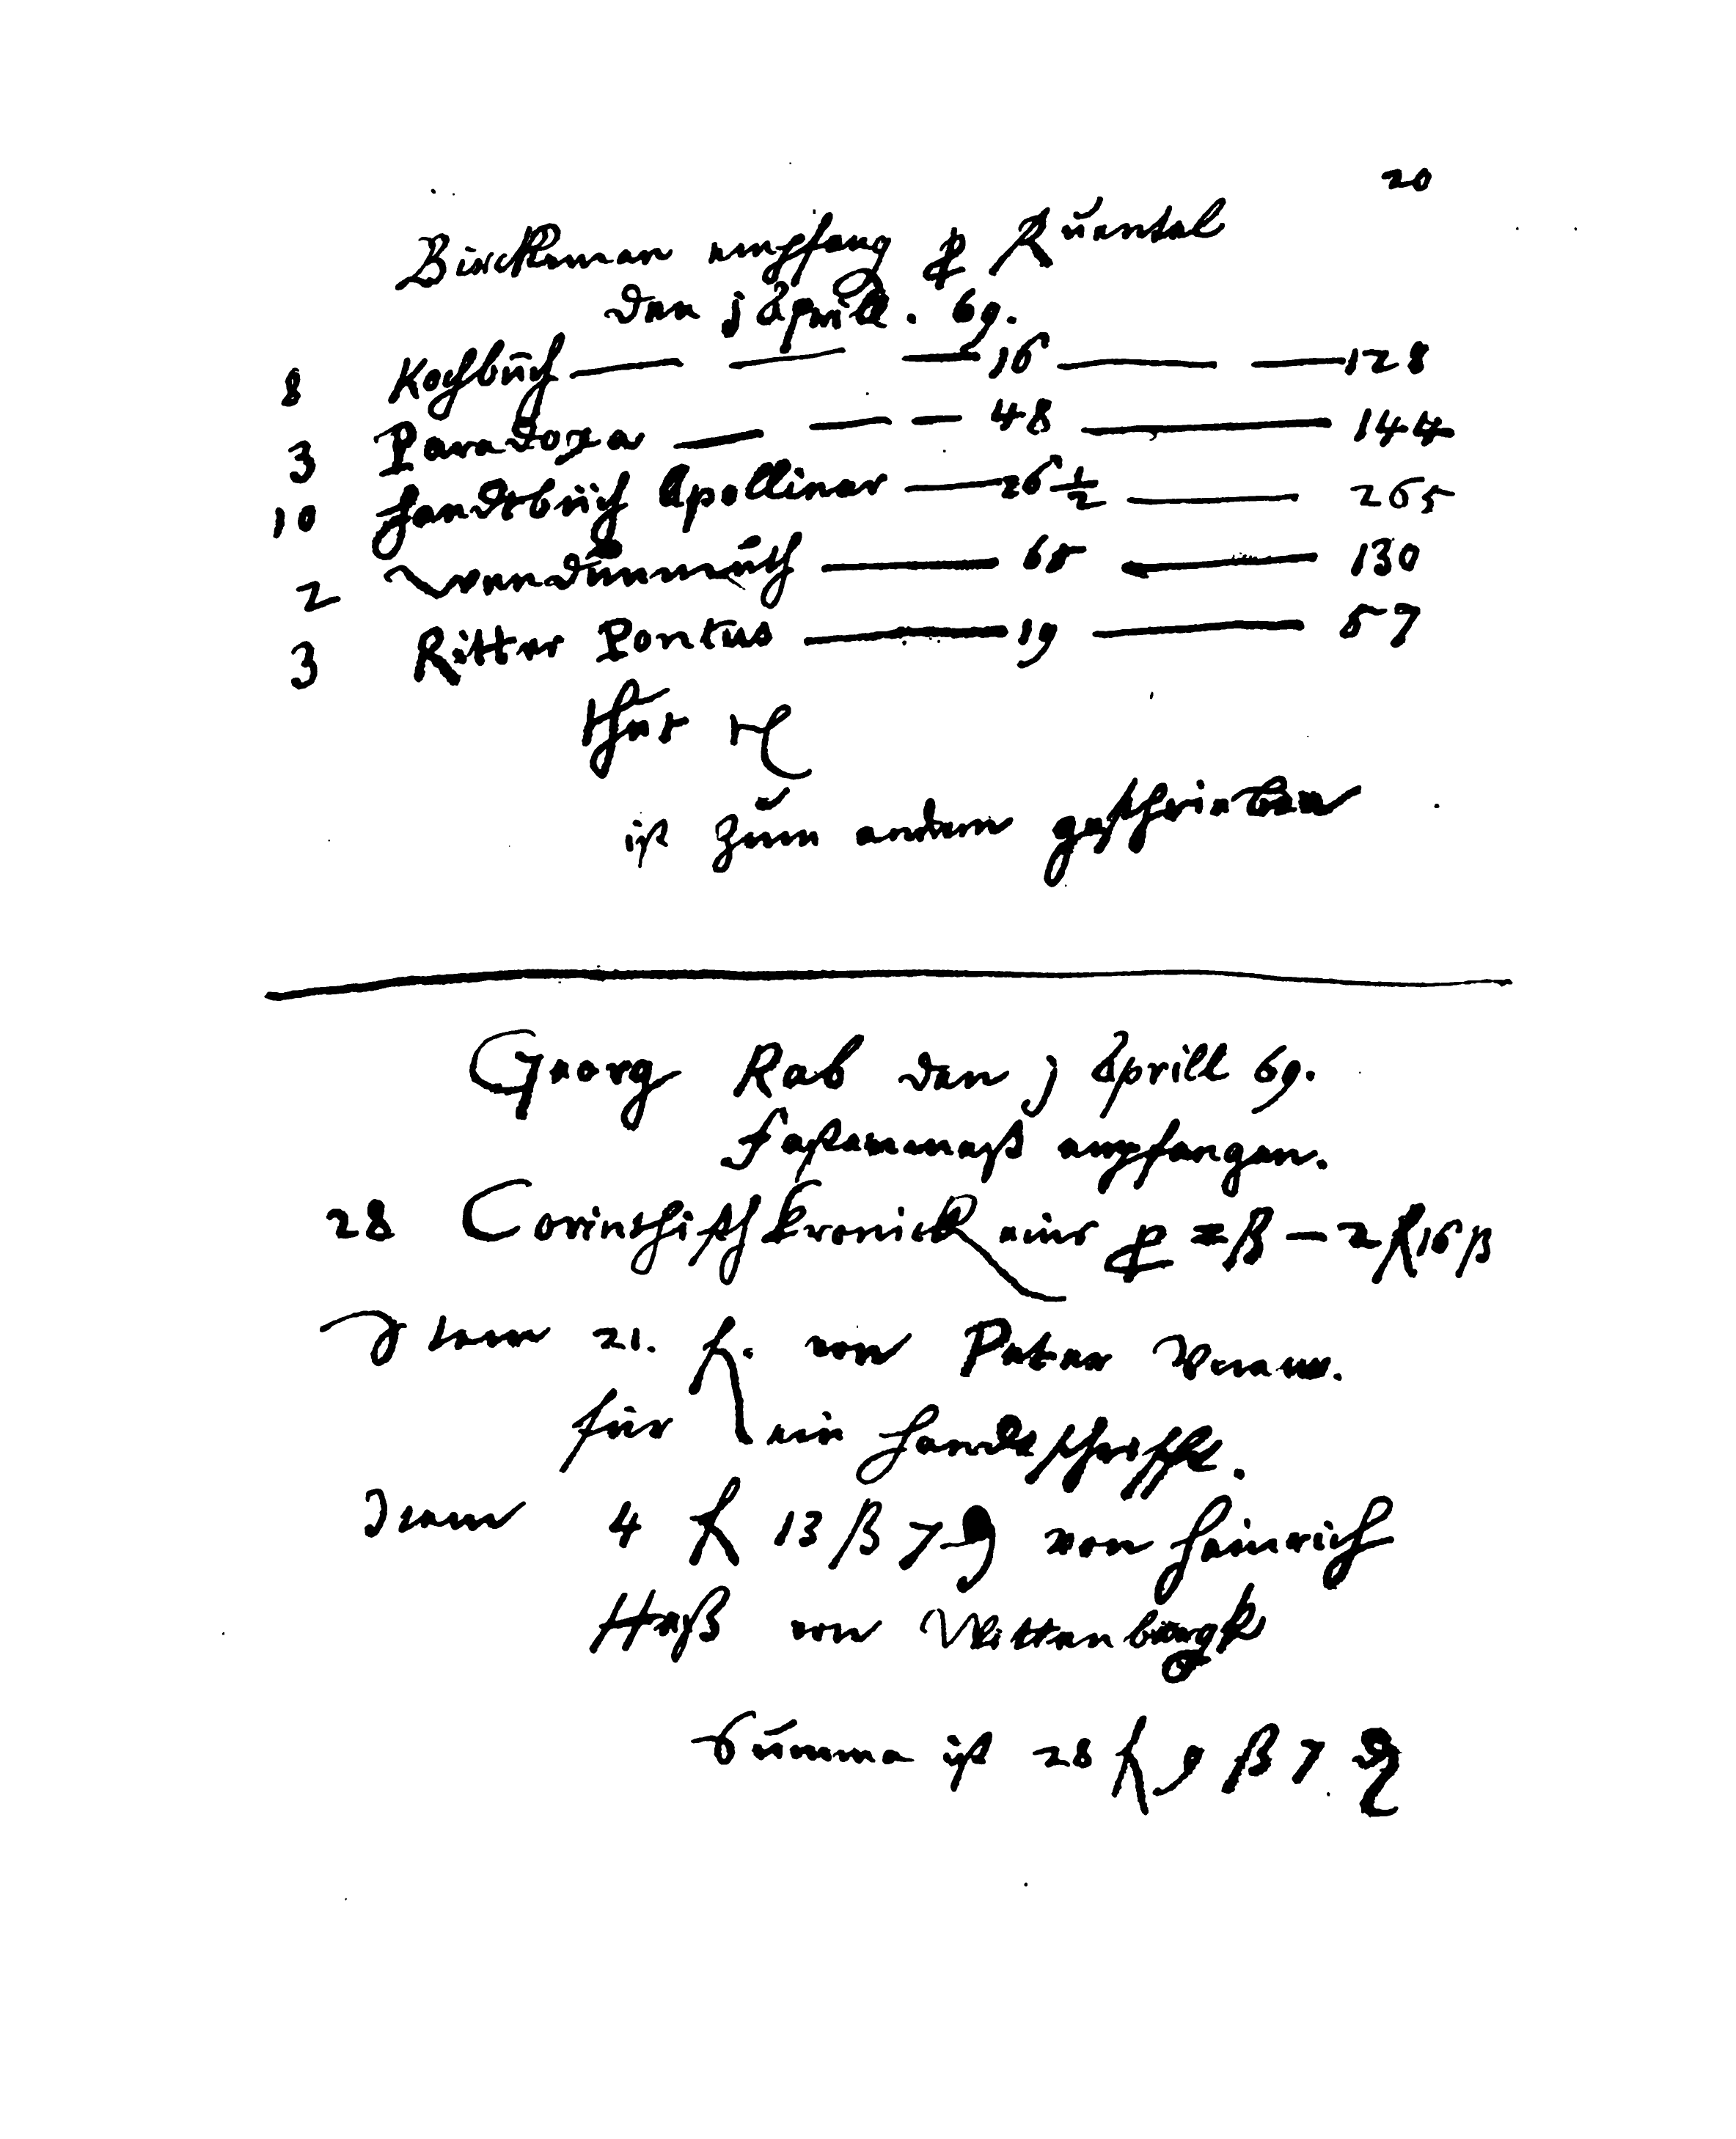 20
Birckman empfang ꝑ Ruentzel
den j Aprill. 69.
8 Kochbůch — — — 16 — — 128
3 Paradoxa — — — 48 — 144
10 Handtbůch Apollinar — 26 ½ — 265
2 Wendunmůth — 65 — 130
3 Ritter Pontus — 19 — 57
thut
ist zům andern geschrieben
Georg Rab den j Aprill 69.
Fastenmeß empfangen.
28 Corinthisch kronick eins ꝑ 2 ß — 2 fl 16 ß
Item 21. fl. von Peter
für ein Handtschrifft.
Item 4 fl 13 ß 7 ₰ von Heinrich
Heß von Wittenbergk
Summa ist 28 fl 9 ß 7 ₰